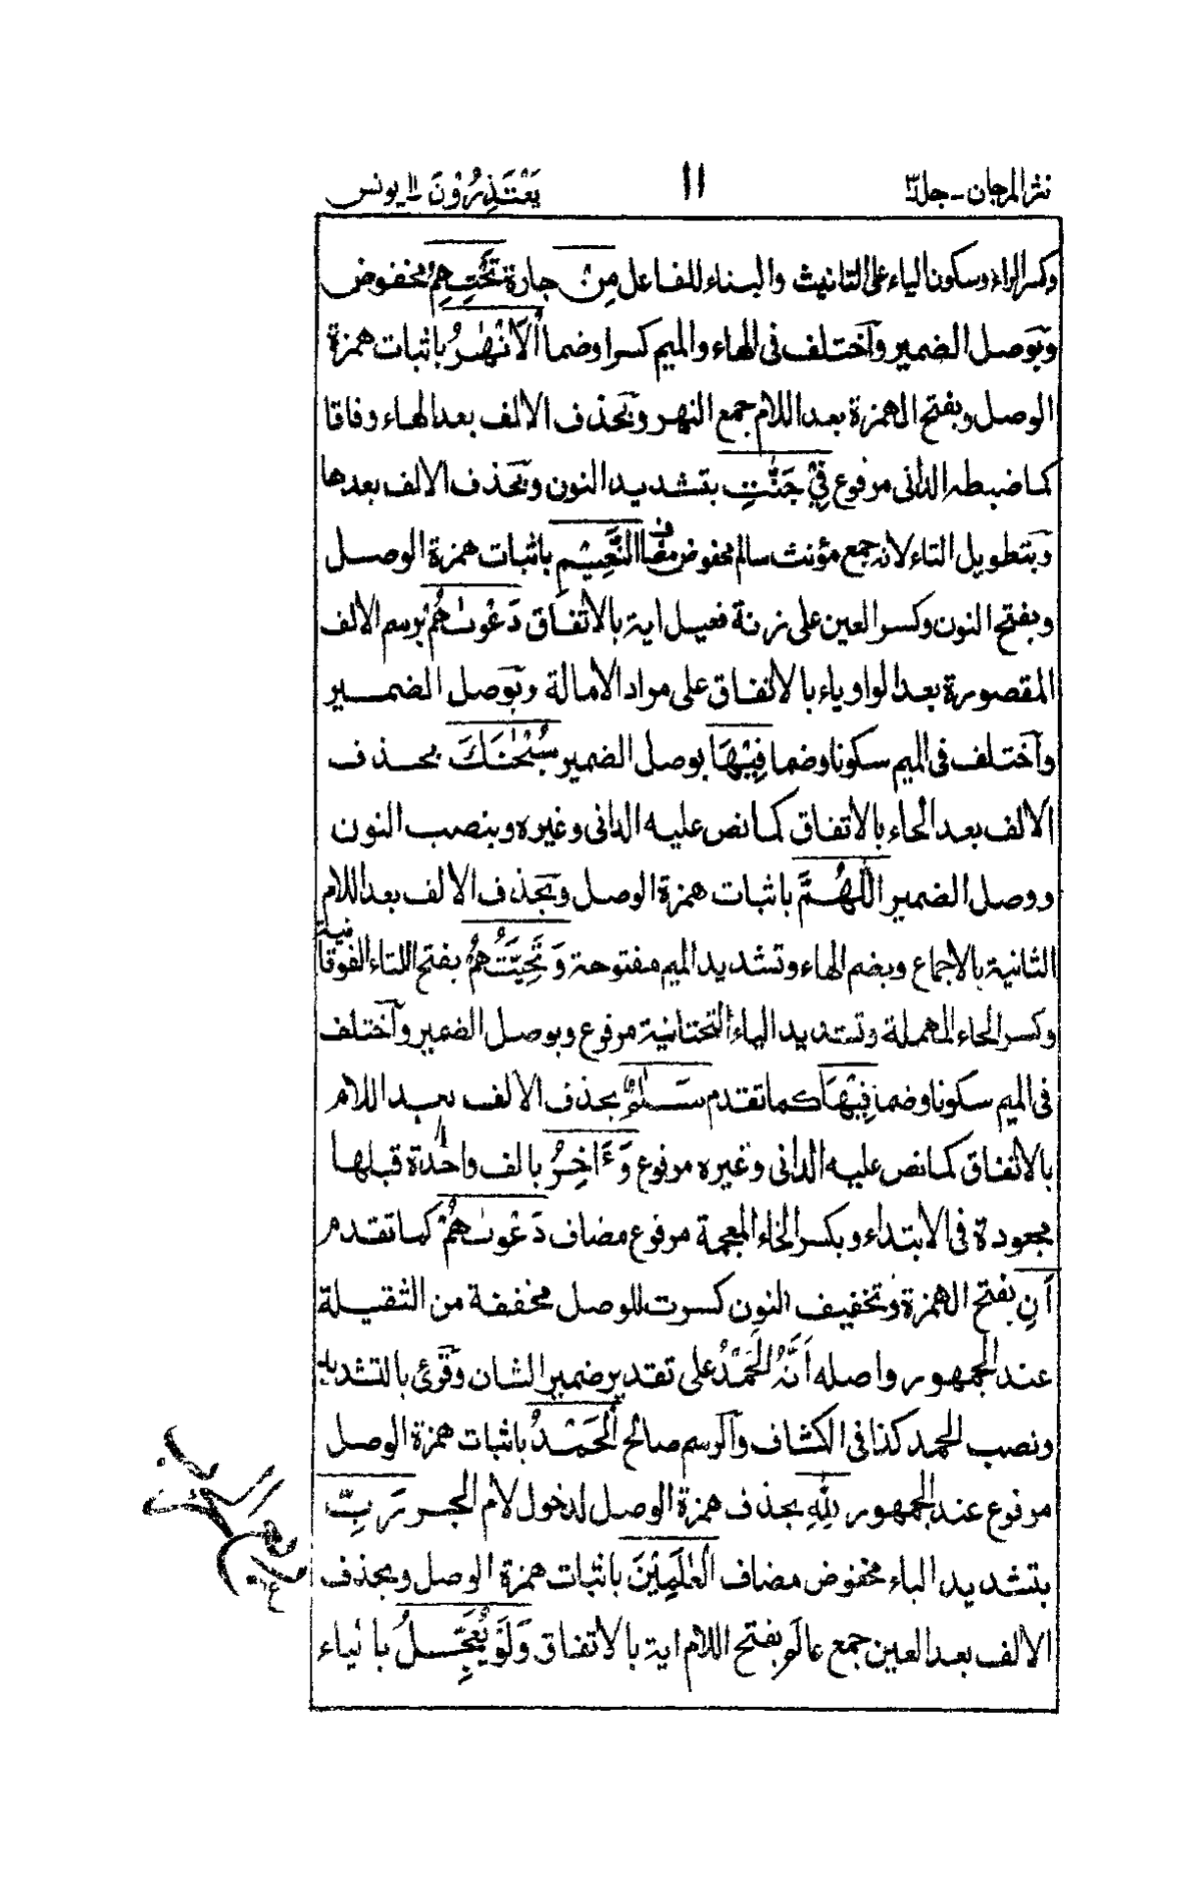 نثر المرجان - جلد ٣
١١
يَعْتَذِرُوْنَ ١١ يونس
وكسر الراء وسكون الياء على التانيث والبناء للفاعل مِنْ جارة تَحْتِهِمُ مخفوض
وبوصل الضمير واختلف فى الهاء والميم كسرا وضما الْاَنْهٰرُ باثبات همزة
الوصل وبفتح الهمزة بعد اللام جمع النهر وبحذف الالف بعد الهاء وفاقا
كما ضبطه الدانى مرفوع فِيْ جَنّٰتِ بتشديد النون وبحذف الالف بعدها
وبتطويل التاء لانه جمع مؤنث سالم مخفوض مضاف النَّعِيْمِ باثبات همزة الوصل
وبفتح النون وكسر العين على زنة فعيل اية بالاتفاق دَعْوٰىهُمْ برسم الالف
المقصورة بعد الواو ياء بالاتفاق على مراد الامالة وبوصل الضمير
واختلف فى الميم سكونا وضما فِيْهَا بوصل الضمير سُبْحٰنَكَ بحذف
الالف بعد الحاء بالاتفاق كما نص عليه الدانى وغيره وبنصب النون
ووصل الضمير اللّٰهُمَّ باثبات همزة الوصل وبحذف الالف بعد اللام
الثانية بالاجماع وبضم الهاء وتشديد الميم مفتوحة وَتَحِيَّتُهُمْ بفتح التاء الفوقانية
وكسر الحاء المهملة وتشديد الياء التحتانية مرفوع وبوصل الضمير واختلف
فى الميم سكونا وضما فِيْهَا كما تقدم سَلٰمٌ بحذف الالف بعد اللام
بالاتفاق كما نص عليه الدانى وغيره مرفوع وَءَاخِرُ بالف واحدة قبلها
مجعودة فى الابتداء وبكسر الخاء المعجمة مرفوع مضاف دَعْوٰىهُمْ كما تقدم
اَنِ بفتح الهمزة وتخفيف النون كسرت للوصل مخففة من الثقيلة
عند الجمهور واصله اَنَّهُ الْحَمْدُ على تقدير ضمير الشان وقرئ بالتشديد
ونصب الحمد كذا فى الكشاف والرسم صالح اَلْحَمْدُ باثبات همزة الوصل
مرفوع عند الجمهور لِلّٰهِ بحذف همزة الوصل لدخول لام الجر رَبِّ
بتشديد الباء مخفوض مضاف الْعٰلَمِيْنَ باثبات همزة الوصل وبحذف
الالف بعد العين جمع عالَم بفتح اللام اية بالاتفاق وَلَوْ يُعَجِّلُ بالياء